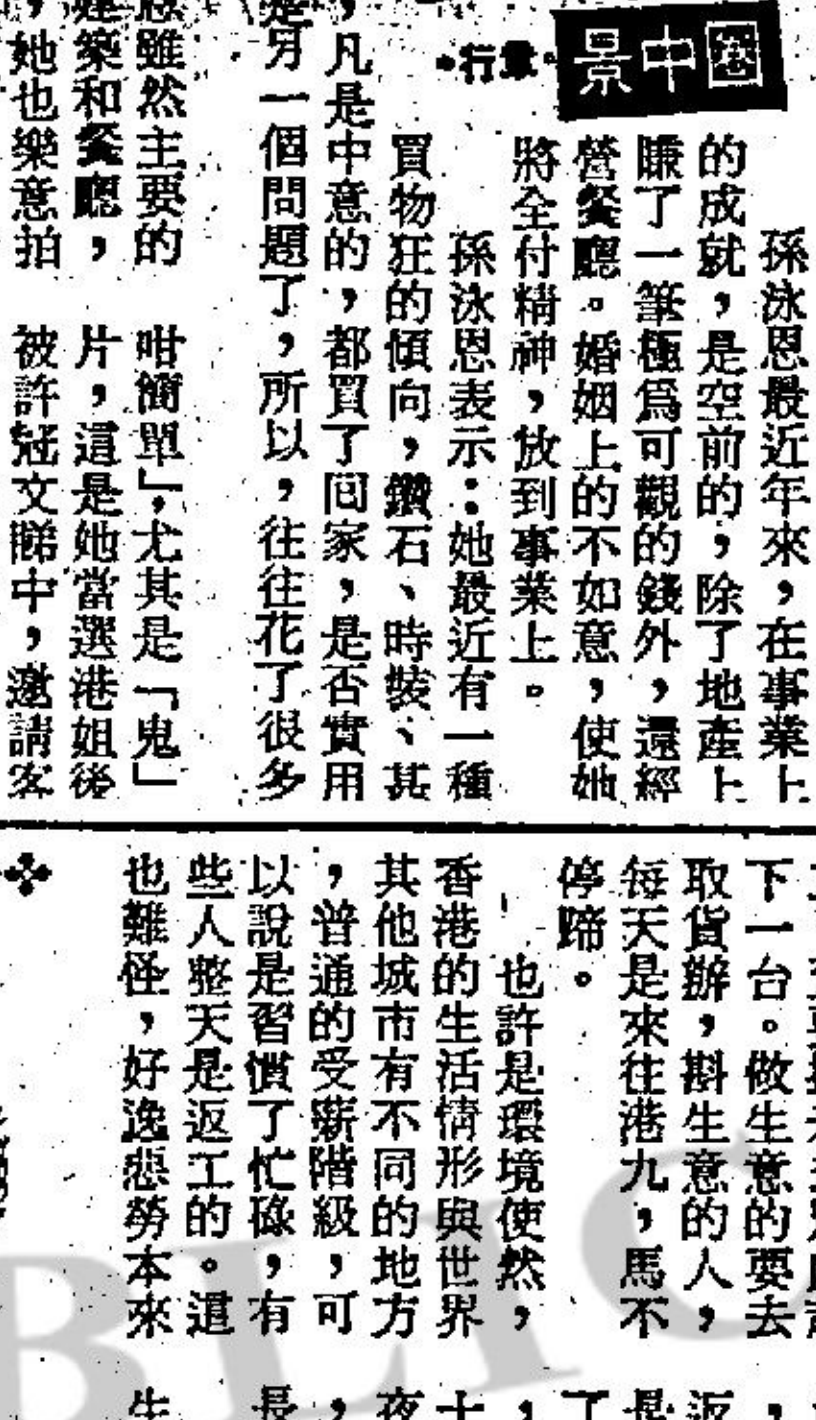 景中
行
孫泳恩最近年來，在事業上
的成就，是空前的，除了地產上
賺了一筆極爲可觀的錢外，還經
營餐廳。婚姻上的不如意，使她
將全付精神，放到事業上。
孫泳恩表示：她最近有一種
買物狂的傾向，鑽石、時裝、其
，凡是中意的，都買了囘家，是否實用
是另一個問題了，所以，往往花了很多
雖然主要的
建築和餐廳，
，她也樂意拍
咁簡單」，尤其是「鬼」
片，這是她當選港姐後
被許冠文睇中，邀請客
下一台。做生意的要去
取貨辦，斟生意的人，
每天是來往港九，馬不
停蹄。
也許是環境使然，
香港的生活情形與世界
其他城市有不同的地方
，普通的受薪階級，可
以說是習慣了忙碌，有
些人整天是返工的。這
也難怪，好逸惡勞本來
，
返
是
了
，
十
夜
，
長
生
BLIC